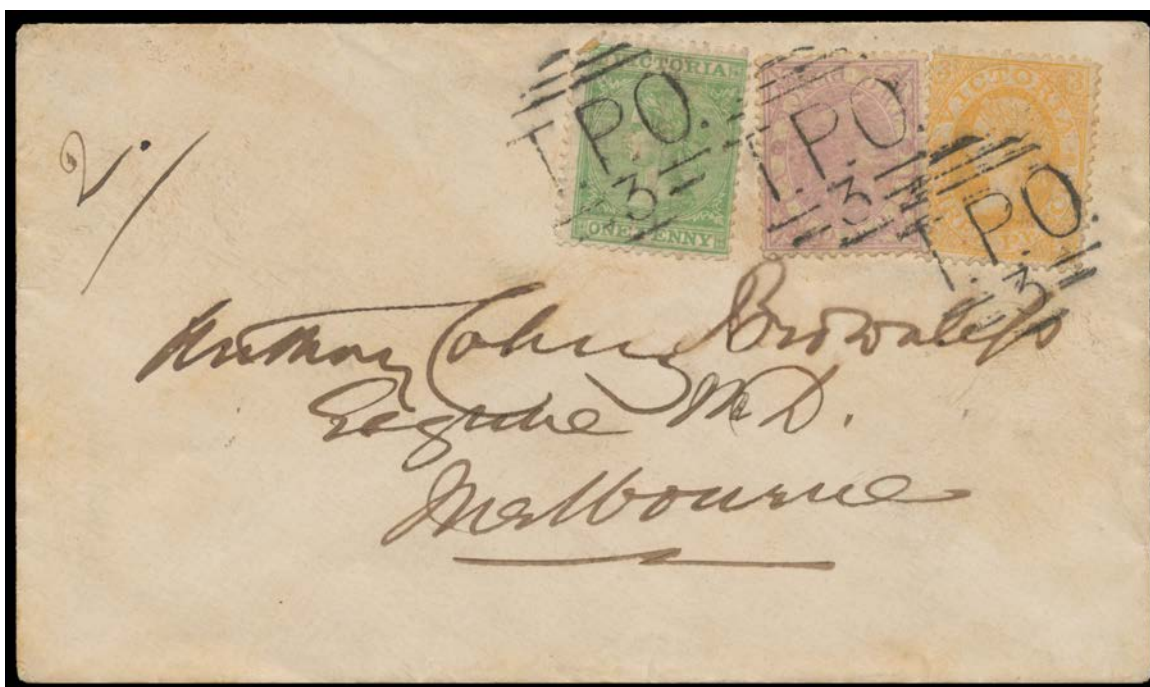 VICTORIA
ONE PENNY
T.P.O.
3
T.P.O.
3
VICTORIA
T.P.O.
3
2./
Anthony Colling Brownless
Esquire M.D.
Melbourne